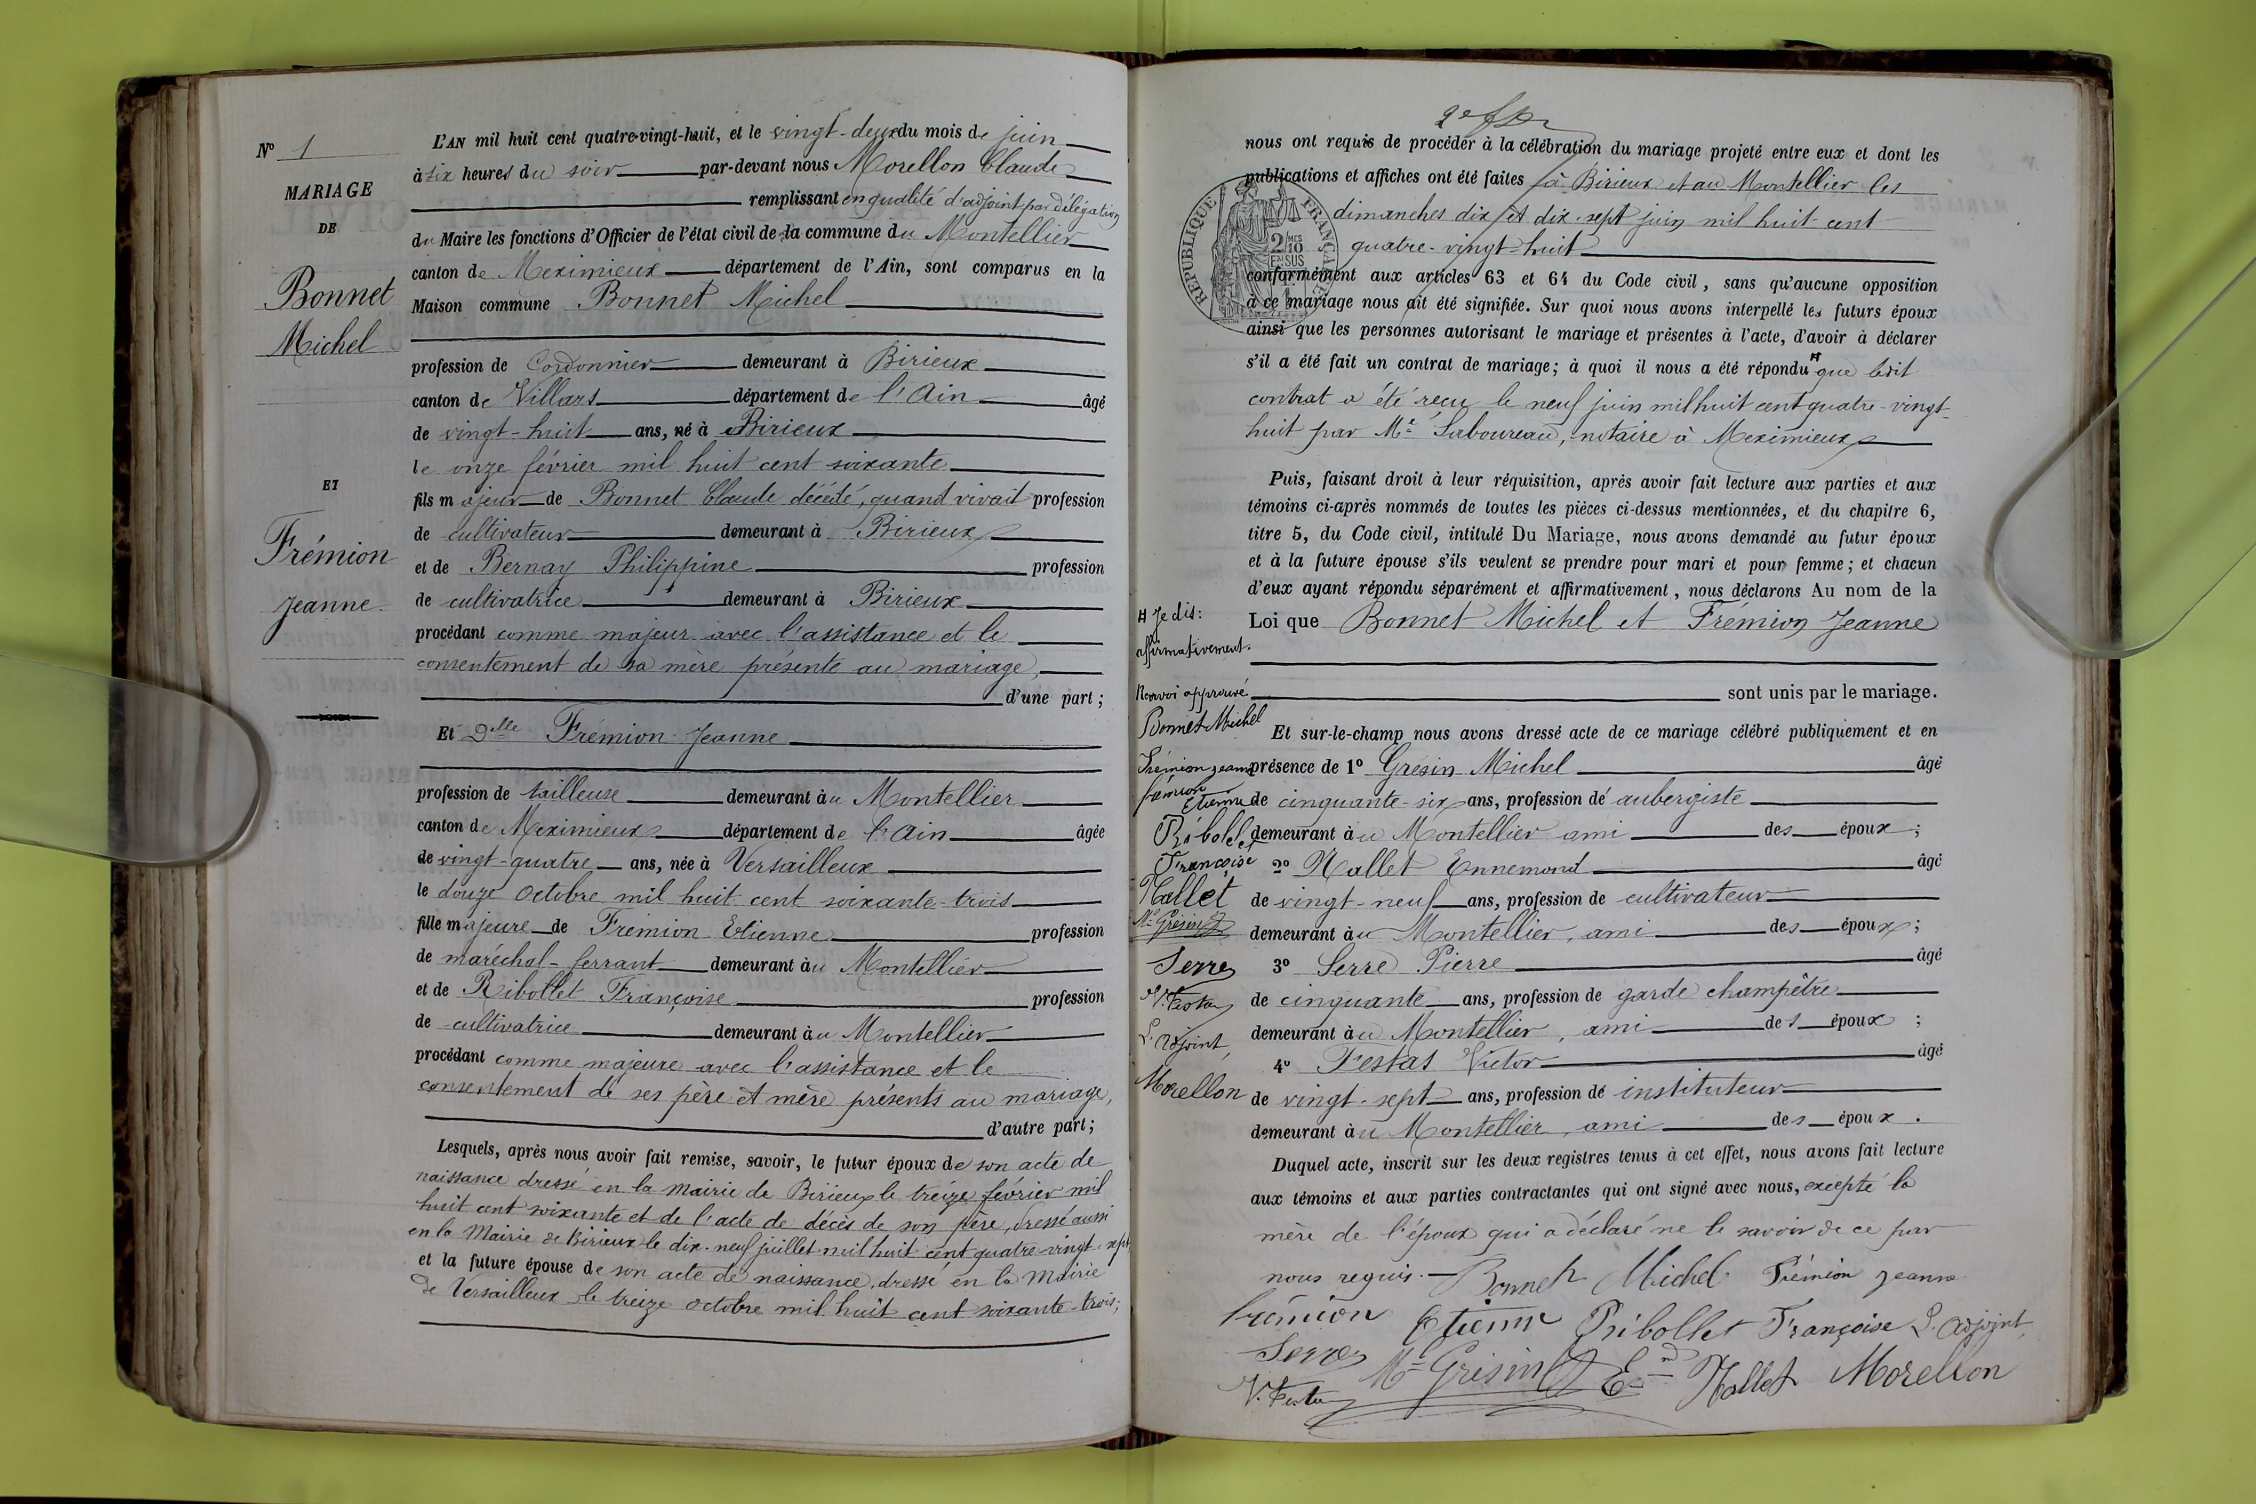 N° 1
MARIAGE
DE
Bonnet
Michel
ET
Frémion
Jeanne
L'AN mil huit cent quatre-vingt-huit, et le vingt-deux du mois de juin
à six heures du soir par-devant nous Morellon Claude
remplissant en qualité d'adjoint par délégation
du Maire les fonctions d'Officier de l'état civil de la commune du Montellier
canton de Meximieux département de l'Ain, sont comparus en la
Maison commune Bonnet Michel
profession de Cordonnier demeurant à Birieux
canton de Villars département de l'Ain âgé
de vingt-huit ans, né à Birieux
le onze février mil huit cent soixante
fils majeur de Bonnet Claude décédé, quand vivait profession
de cultivateur demeurant à Birieux
et de Bernay Philippine profession
de cultivatrice demeurant à Birieux
procédant comme majeur avec l'assistance et le
consentement de sa mère présente au mariage,
d'une part;
Et Dlle Frémion Jeanne
profession de tailleuse demeurant au Montellier
canton de Meximieux département de l'Ain âgée
de vingt-quatre ans, née à Versailleux
le douze Octobre mil huit cent soixante-trois
fille majeure de Frémion Etienne profession
de maréchal-ferrant demeurant au Montellier
et de Ribollet Françoise profession
de cultivatrice demeurant au Montellier
procédant comme majeure avec l'assistance et le
consentement de ses père et mère présents au mariage,
d'autre part;
Lesquels, après nous avoir fait remise, savoir, le futur époux de son acte de
naissance dressé en la Mairie de Birieux le treize février mil
huit cent soixante et de l'acte de décès de son père, dressé aussi
en la Mairie de Birieux le dix-neuf juillet mil huit cent quatre-vingt-sept
et la future épouse de son acte de naissance, dressé en la Mairie
de Versailleux le treize octobre mil huit cent soixante-trois;
nous ont requis de procéder à la célébration du mariage projeté entre eux et dont les
publications et affiches ont été faites à Birieux et au Montellier les
dimanches dix et dix-sept juin mil huit cent
quatre-vingt-huit
RÉPUBLIQUE FRANÇAISE
2/10
EN SUS
conformément aux articles 63 et 64 du Code civil, sans qu'aucune opposition
à ce mariage nous ait été signifiée. Sur quoi nous avons interpellé les futurs époux
ainsi que les personnes autorisant le mariage et présentes à l'acte, d'avoir à déclarer
s'il a été fait un contrat de mariage; à quoi il nous a été répondu # que ledit
contrat a été reçu le neuf juin mil huit cent quatre-vingt-
huit par Me Saboureau, notaire à Meximieux
Puis, faisant droit à leur réquisition, après avoir fait lecture aux parties et aux
témoins ci-après nommés de toutes les pièces ci-dessus mentionnées, et du chapitre 6,
titre 5, du Code civil, intitulé Du Mariage, nous avons demandé au futur époux
et à la future épouse s'ils veulent se prendre pour mari et pour femme; et chacun
d'eux ayant répondu séparément et affirmativement, nous déclarons Au nom de la
Loi que Bonnet Michel et Frémion Jeanne
sont unis par le mariage.
Et sur-le-champ nous avons dressé acte de ce mariage célébré publiquement et en
présence de 1° Grésin Michel âgé
de cinquante-six ans, profession de aubergiste
demeurant au Montellier ami des époux;
2° Nallet Ennemond âgé
de vingt-neuf ans, profession de cultivateur
demeurant au Montellier, ami des époux;
3° Serre Pierre âgé
de cinquante ans, profession de garde champêtre
demeurant au Montellier, ami des époux;
4° Festas Victor âgé
de vingt-sept ans, profession de instituteur
demeurant au Montellier, ami des époux.
Duquel acte, inscrit sur les deux registres tenus à cet effet, nous avons fait lecture
aux témoins et aux parties contractantes qui ont signé avec nous, excepté la
mère de l'époux qui a déclaré ne le savoir de ce par
nous requis.
Bonnet Michel Frémion Jeanne
frémion Etienne Ribollet Françoise L'adjoint,
Serre Ml Grésin Ed Nallet Morellon
V. Festas
# Je dis:
affirmativement.
Renvoi approuvé
Bonnet Michel
Frémion jeanne
frémion
Etienne
Ribollet
Françoise
Nallet
Ml Grésin
Serre
V. Festas
L'adjoint,
Morellon